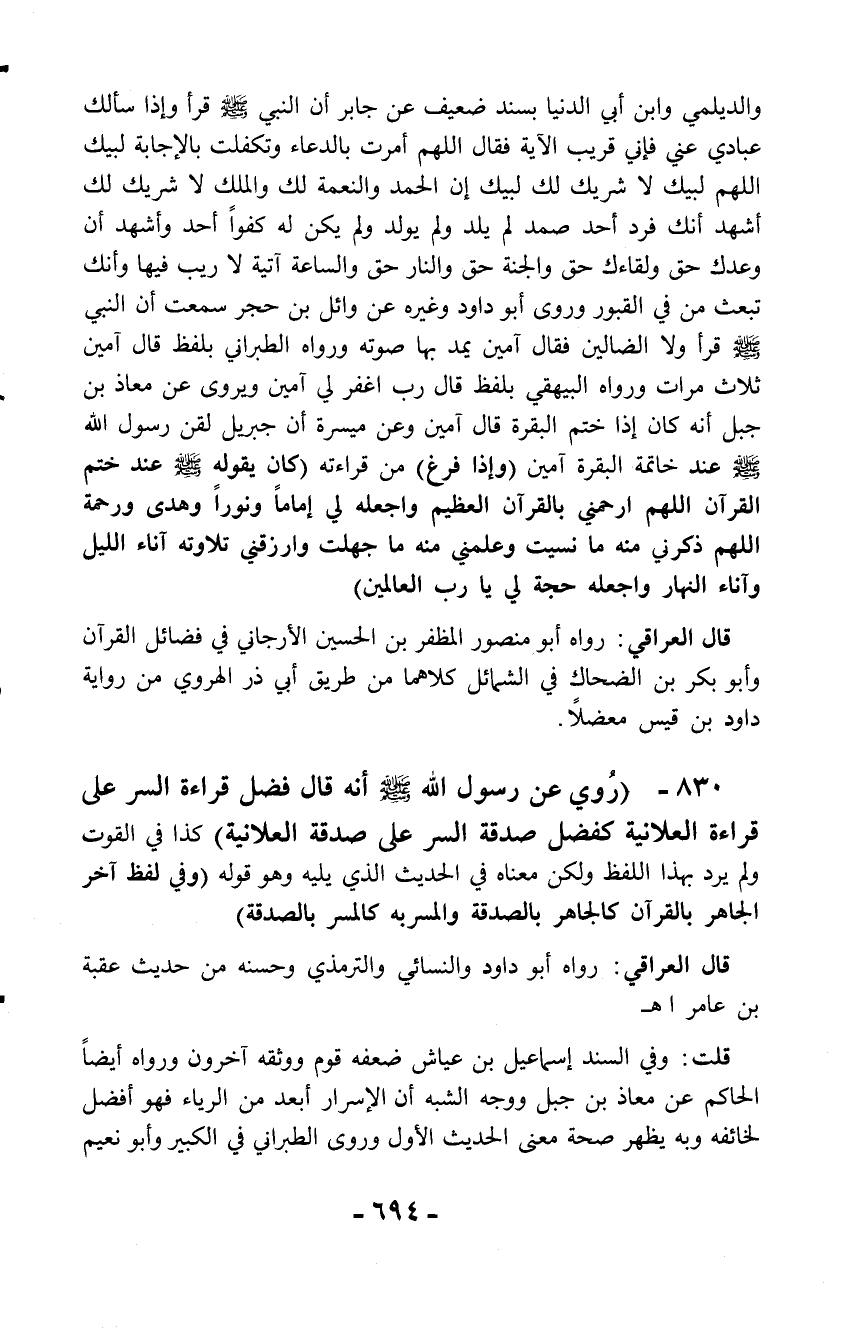 والديلمي وابن أبي الدنيا بسند ضعيف عن جابر أن النبي ﷺ قرأ وإذا سألك
عبادي عني فإني قريب الآية فقال اللهم أمرت بالدعاء وتكفلت بالإجابة لبيك
اللهم لبيك لا شريك لك لبيك إن الحمد والنعمة لك والملك لا شريك لك
أشهد أنك فرد أحد صمد لم يلد ولم يولد ولم يكن له كفواً أحد وأشهد أن
وعدك حق ولقاءك حق والجنة حق والنار حق والساعة آتية لا ريب فيها وأنك
تبعث من في القبور وروى أبو داود وغيره عن وائل بن حجر سمعت أن النبي
ﷺ قرأ ولا الضالين فقال آمين يمد بها صوته ورواه الطبراني بلفظ قال آمين
ثلاث مرات ورواه البيهقي بلفظ قال رب اغفر لي آمين ويروى عن معاذ بن
جبل أنه كان إذا ختم البقرة قال آمين وعن ميسرة أن جبريل لقن رسول الله
ﷺ عند خاتمة البقرة آمين (وإذا فرغ) من قراءته (كان يقوله ﷺ عند ختم
القرآن اللهم ارحمني بالقرآن العظيم واجعله لي إماماً ونوراً وهدى ورحمة
اللهم ذكرني منه ما نسيت وعلمني منه ما جهلت وارزقني تلاوته آناء الليل
وآناء النهار واجعله حجة لي يا رب العالمين)
قال العراقي: رواه أبو منصور المظفر بن الحسين الأرجاني في فضائل القرآن
وأبو بكر بن الضحاك في الشمائل كلاهما من طريق أبي ذر الهروي من رواية
داود بن قيس معضلاً.
٨٣٠ - (رُوي عن رسول الله ﷺ أنه قال فضل قراءة السر على
قراءة العلانية كفضل صدقة السر على صدقة العلانية) كذا في القوت
ولم يرد بهذا اللفظ ولكن معناه في الحديث الذي يليه وهو قوله (وفي لفظ آخر
الجاهر بالقرآن كالجاهر بالصدقة والمسربه كالمسر بالصدقة)
قال العراقي: رواه أبو داود والنسائي والترمذي وحسنه من حديث عقبة
بن عامر ا هـ
قلت: وفي السند إسماعيل بن عياش ضعفه قوم ووثقه آخرون ورواه أيضاً
الحاكم عن معاذ بن جبل ووجه الشبه أن الإسرار أبعد من الرياء فهو أفضل
لخائفه وبه يظهر صحة معنى الحديث الأول وروى الطبراني في الكبير وأبو نعيم
- ٦٩٤ -